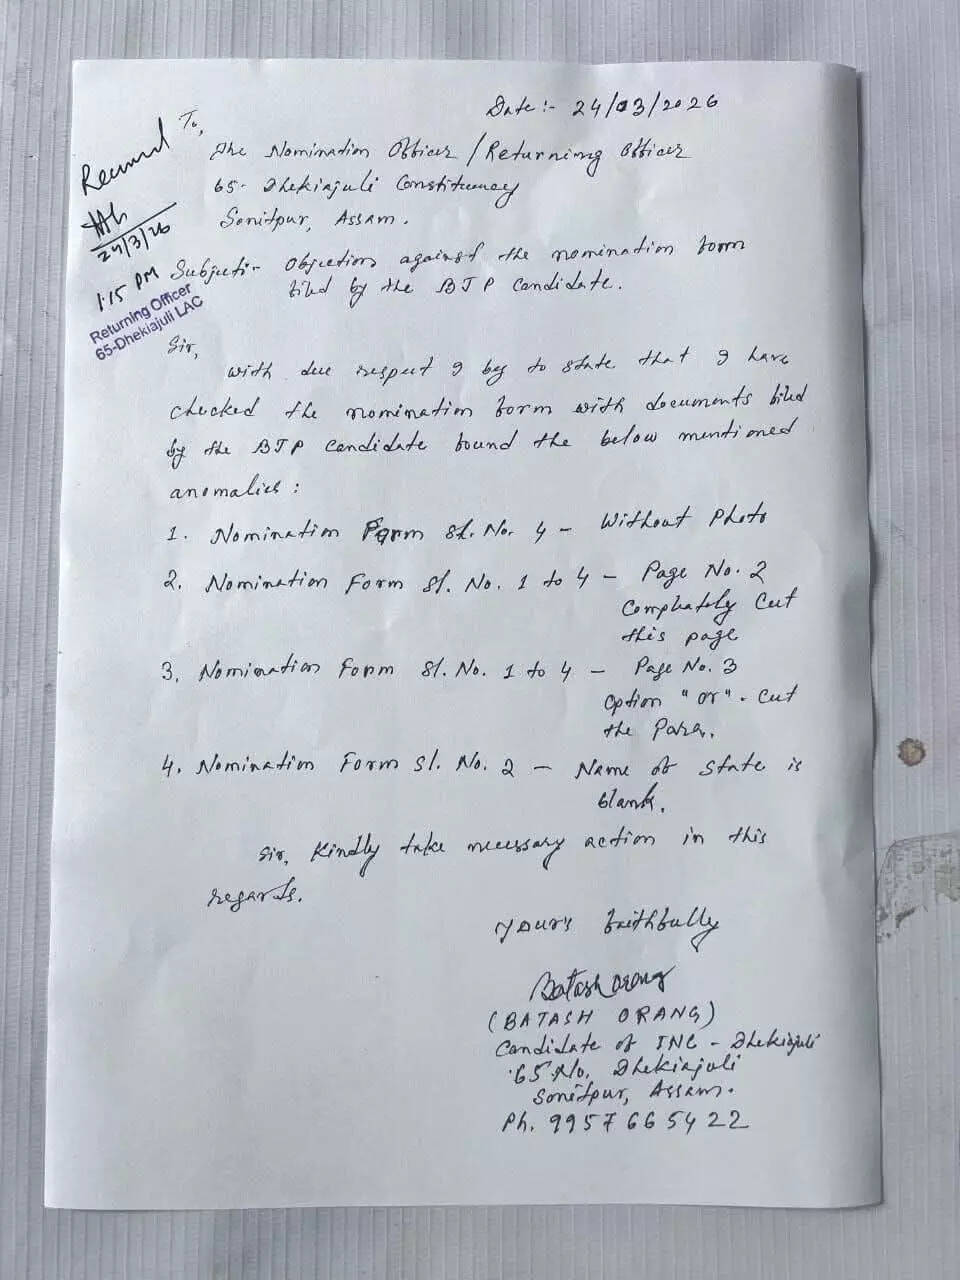 Date :- 24/03/2026
To,
The Nomination Officer / Returning Officer
65- Dhekiajuli Constituency
Sonitpur, Assam.
Received
24/3/26
1·15 PM
Returning Officer
65-Dhekiajuli LAC
Subject:- Objection against the nomination form
filed by the BJP Candidate.
Sir,
With due respect I beg to state that I have
checked the nomination form with documents filed
by the BJP Candidate found the below mentioned
anomalies :
1. Nomination Form Sl. No. 4 - Without Photo
2. Nomination Form Sl. No. 1 to 4 - Page No. 2
Complately Cut
this page
3. Nomination Form Sl. No. 1 to 4 - Page No. 3
Option "or". Cut
the Para.
4. Nomination Form Sl. No. 2 - Name of State is
blank.
Sir, Kindly take necessary action in this
regards.
Yours faithfully
Batash Orang
(BATASH ORANG)
Candidate of INC - Dhekiajuli
65 No. Dhekiajuli
Sonitpur, Assam.
Ph. 9957665422